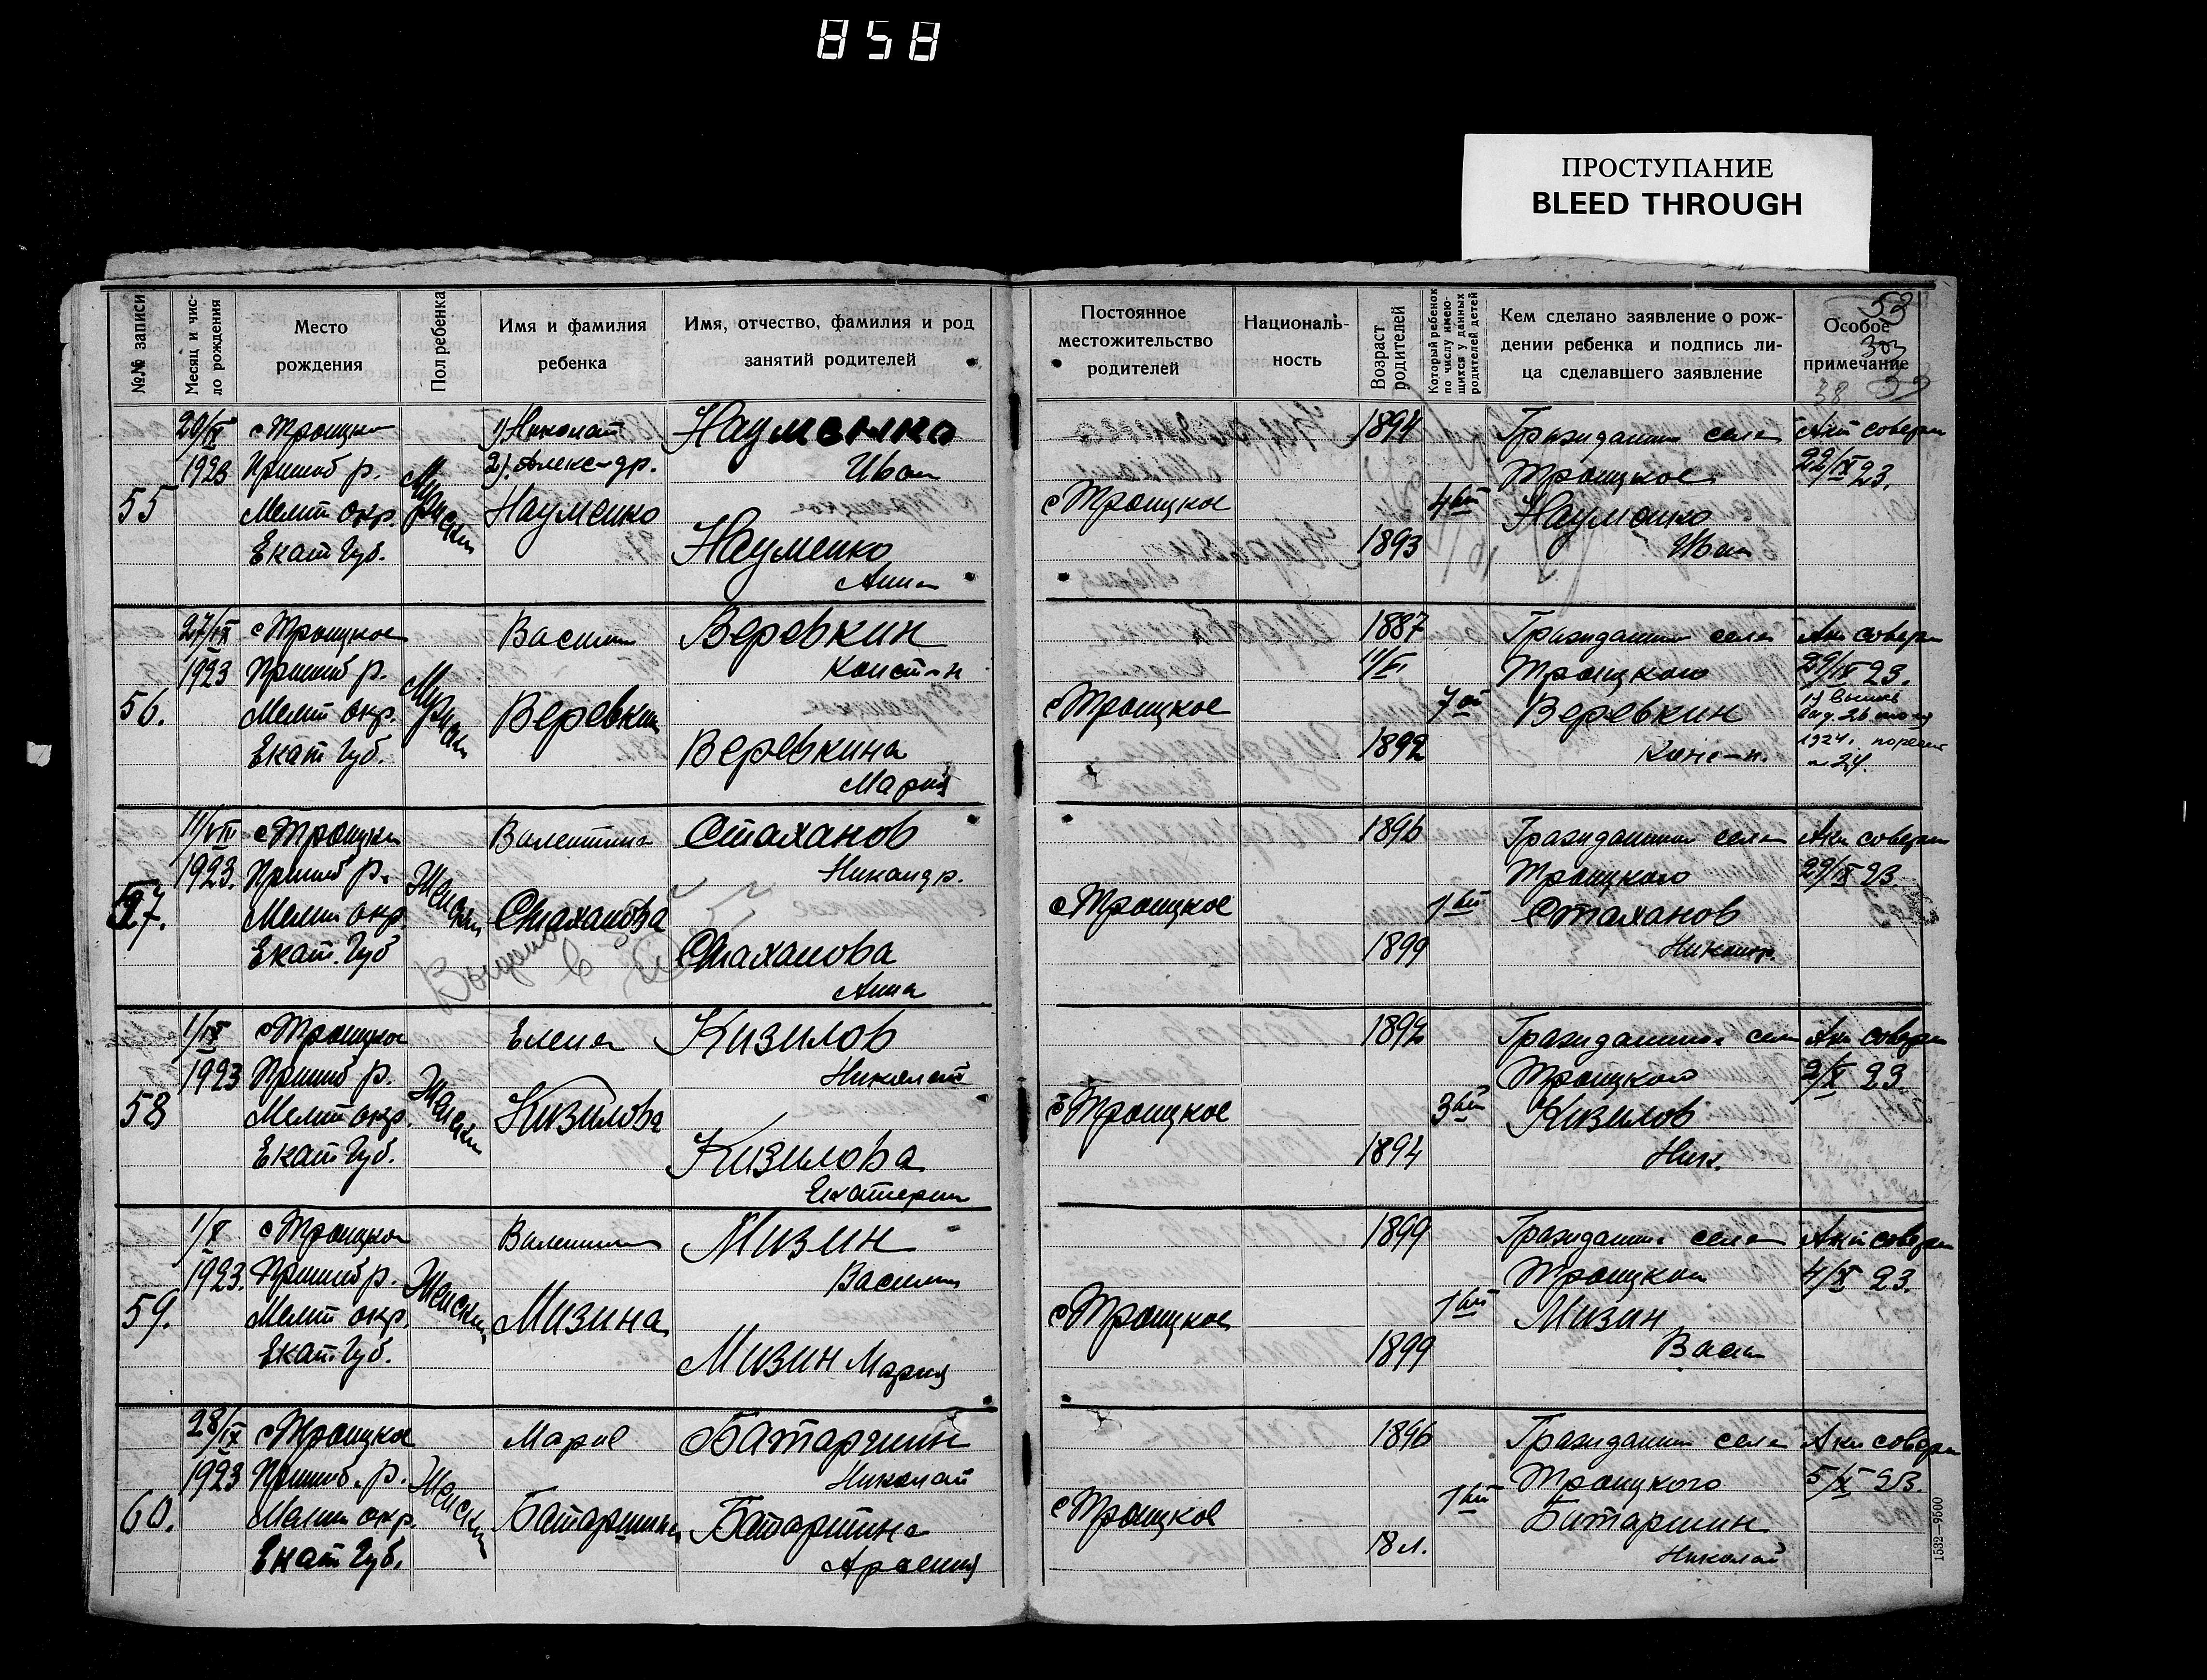 858
ПРОСТУПАНИЕ
BLEED THROUGH
№№ записи
Месяц и чис-
ло рождения
Место
рождения
Пол ребенка
Имя и фамилия
ребенка
Имя, отчество, фамилия и род
занятий родителей
Постоянное
местожительство
родителей
Националь-
ность
Возраст
родителей
Который ребенок
по числу имею-
щихся у данных
родителей детей
Кем сделано заявление о рож-
дении ребенка и подпись ли-
ца сделавшего заявление
Особое
примечание
53
303
38
55
20/IX
1923
с Троицко
Пришиб р.
Мелит окр.
Екат Губ.
Мужский
1) Николай
2). Александр.
Науменко
Науменко
Иван
Науменко
Анна
с Троицкое
1894
1893
4ый
Гражданин села
Троицкое
Науменко
Иван
Акт соверш
22/IX 23.
56.
27/IX
1923
с Троицкое
Пришиб р.
Мелит окр.
Екат Губ.
Василий
Веревкин
Веревкин
Конст-н
Веревкина
Мария
с Троицкое
1887
1892
7ой
Гражданин села
Троицкого
Веревкин
Конс-н.
Акт соверш
29/IX 23.
1924.
57.
11/VIII
1923.
с Троицкое
Пришиб р.
Мелит окр.
Екат. Губ
Женский
Валентина
Стаханова
Стаханов
Никандр.
Стаханова
Анна
с Троицкое
1896
1899
1ый
Гражданин села
Троицкого
Стаханов
Никандр.
Акт соверш
29/IX 23.
58
1/IX
1923
с Троицкое
Пришиб р.
Мелит окр.
Екат Губ.
Женский
Елена
Кизилова
Кизилов
Николай
Кизилова
Екатерин
с Троицкое
1892
1894
3ый
Гражданин села
Троицкого
Кизилов
Ник.
Акт соверш
2/X 23.
59.
1/X
1923.
с Троицкое
Пришиб р.
Мелит окр.
Екат. Губ.
Женский
Валентина
Мизина
Мизин
Василий
Мизин Мария
с Троицкое
1899
1899
1ый
Гражданин села
Троицкого
Мизин
Васил
Акт соверш
4/X 23.
60.
28/IX
1923
с Троицкое
Пришиб. р.
Мелит окр.
Екат Губ.
Женский
Мария
Батаршина
Батаршин
Николай
Батаршина
с Троицкое
1896
18 л.
1ый
Гражданин села
Троицкого
Батаршин
Николай
Акт соверш
5/X 23.
1532—9500